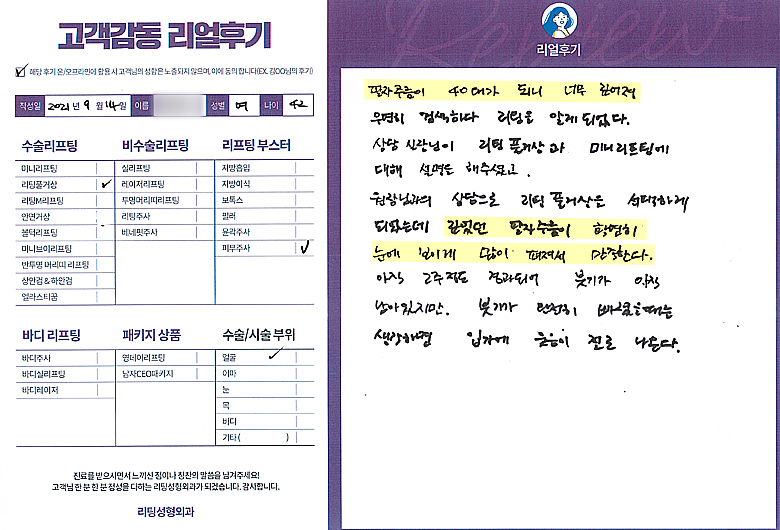 고객감동 리얼후기
해당 후기 온/오프라인에 활용 시 고객님의 성함은 노출되지 않으며, 이에 동의 합니다(EX. 김OO님의 후기)
작성일 2021년 9월 14일 이름 성별 여 나이 42
수술리프팅
미니리프팅
리팅풀거상
리팅M리프팅
안면거상
볼턱리프팅
미니브이리프팅
반투명 머리띠 리프팅
상안검 & 하안검
엘라스티꿈
비수술리프팅
실리프팅
레이저리프팅
투명머리띠리프팅
리팅주사
비너핏주사
리프팅 부스터
지방흡입
지방이식
보톡스
필러
윤곽주사
피부주사
바디 리프팅
바디주사
바디실리프팅
바디레이저
패키지 상품
영데이리프팅
남자CEO패키지
수술/시술 부위
얼굴
이마
눈
목
바디
기타( )
진료를 받으시면서 느끼신 점이나 칭찬의 말씀을 남겨주세요!
고객님 한 분 한 분 정성을 다하는 리팅성형외과가 되겠습니다. 감사합니다.
리팅성형외과
Review
리얼후기
팔자주름이 40대가 되니 너무 깊어져
우연히 검색하다 리팅을 알게 되었다.
상담 실장님이 리팅 풀거상과 미니리프팅에
대해 설명을 해주셨고.
원장님과의 상담으로 리팅 풀거상을 선택하게
되었는데 깊었던 팔자주름이 확연히
눈에 보이게 많이 펴져서 만족한다.
아직 2주정도 경과되어 붓기가 아직
남아있지만. 붓기가 완전히 빠졌을때는
생각하면 입가에 웃음이 절로 나온다.